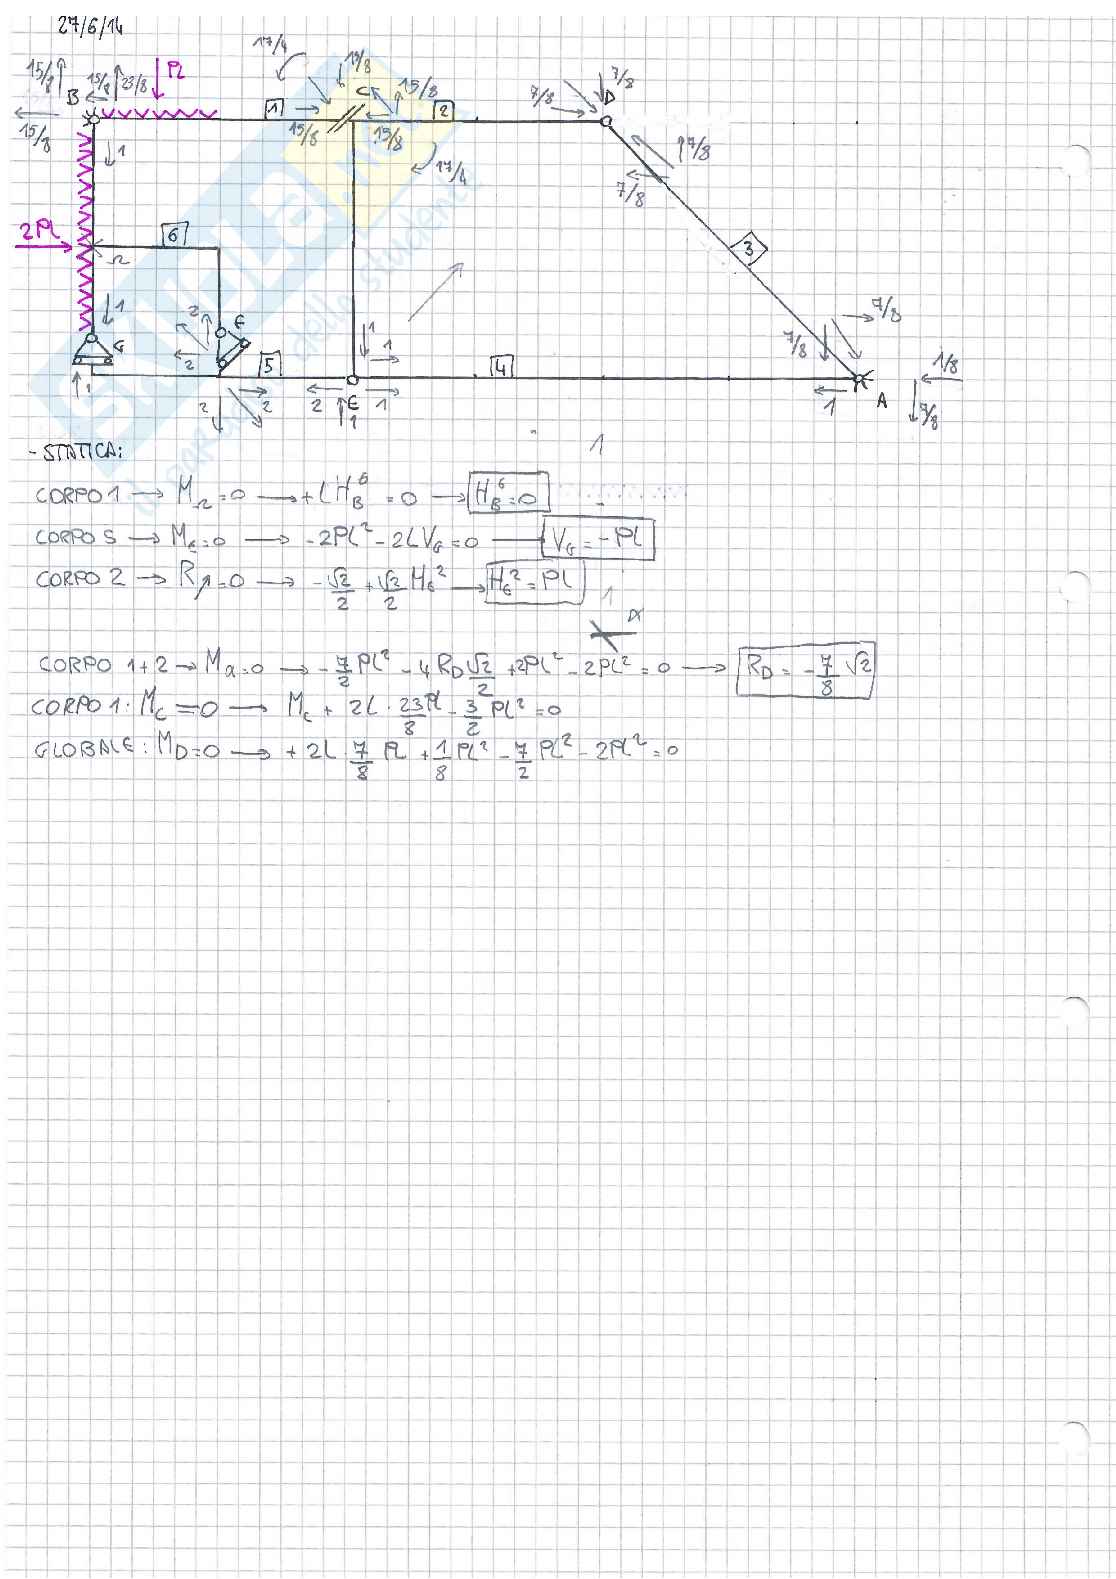 27/6/14
17/4
15/8 15/8 23/8 Pl 15/8 C 15/8 7/8 D
B 1 2 7/8
15/8 15/8 15/8
1 17/4 7/8
7/8
2Pl 6 3
Ω
1 2 F 1 7/8
G 2 5 1 4 7/8 1/8
1 2 2 2 E 1 1 A 7/8
1
- STATICA:
CORPO 1 → MΩ=0 → +LH_B^6 = 0 → H_B^6=0
CORPO 5 → M_E=0 → -2Pl²-2LV_G=0 → V_G=-Pl
CORPO 2 → R↗=0 → -√2/2 + √2/2 H_G² → H_G²=Pl
α
CORPO 1+2 → Mα=0 → -7/2 Pl² - 4R_D √2/2 + 2Pl² - 2Pl² = 0 → R_D = -7/8 √2
CORPO 1: M_C=0 → M_C + 2L · 23Pl/8 - 3/2 Pl²=0
GLOBALE: M_D=0 → +2L 7/8 Pl + 1/8 Pl² - 7/2 Pl² - 2Pl²=0